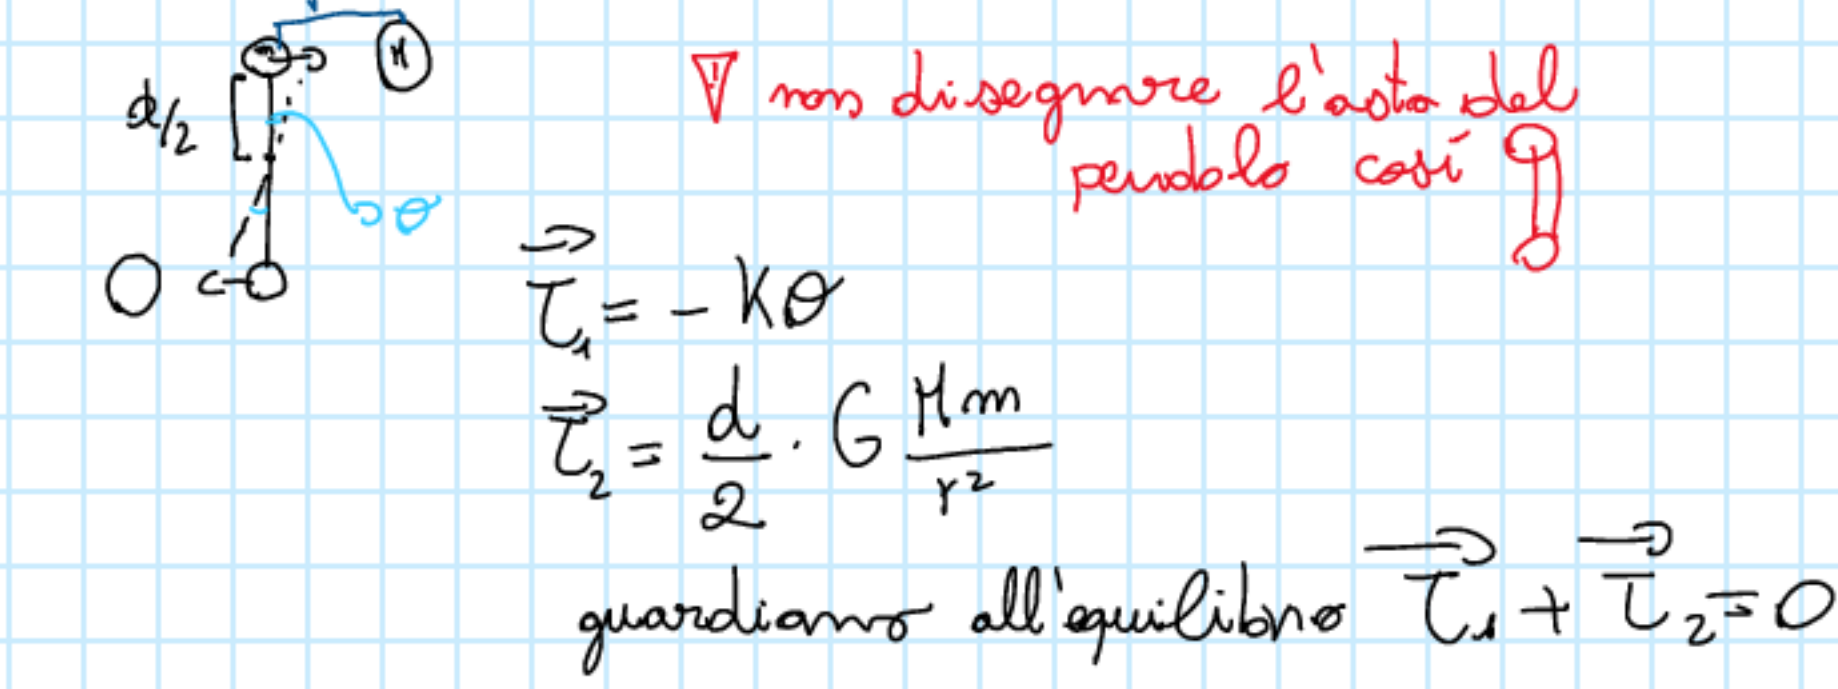 m M
d/2
θ
non disegnare l'asta del
pendolo così
τ₁ = - Kθ
τ₂ = d/2 · G Mm/r²
guardiamo all'equilibrio τ₁ + τ₂ = 0